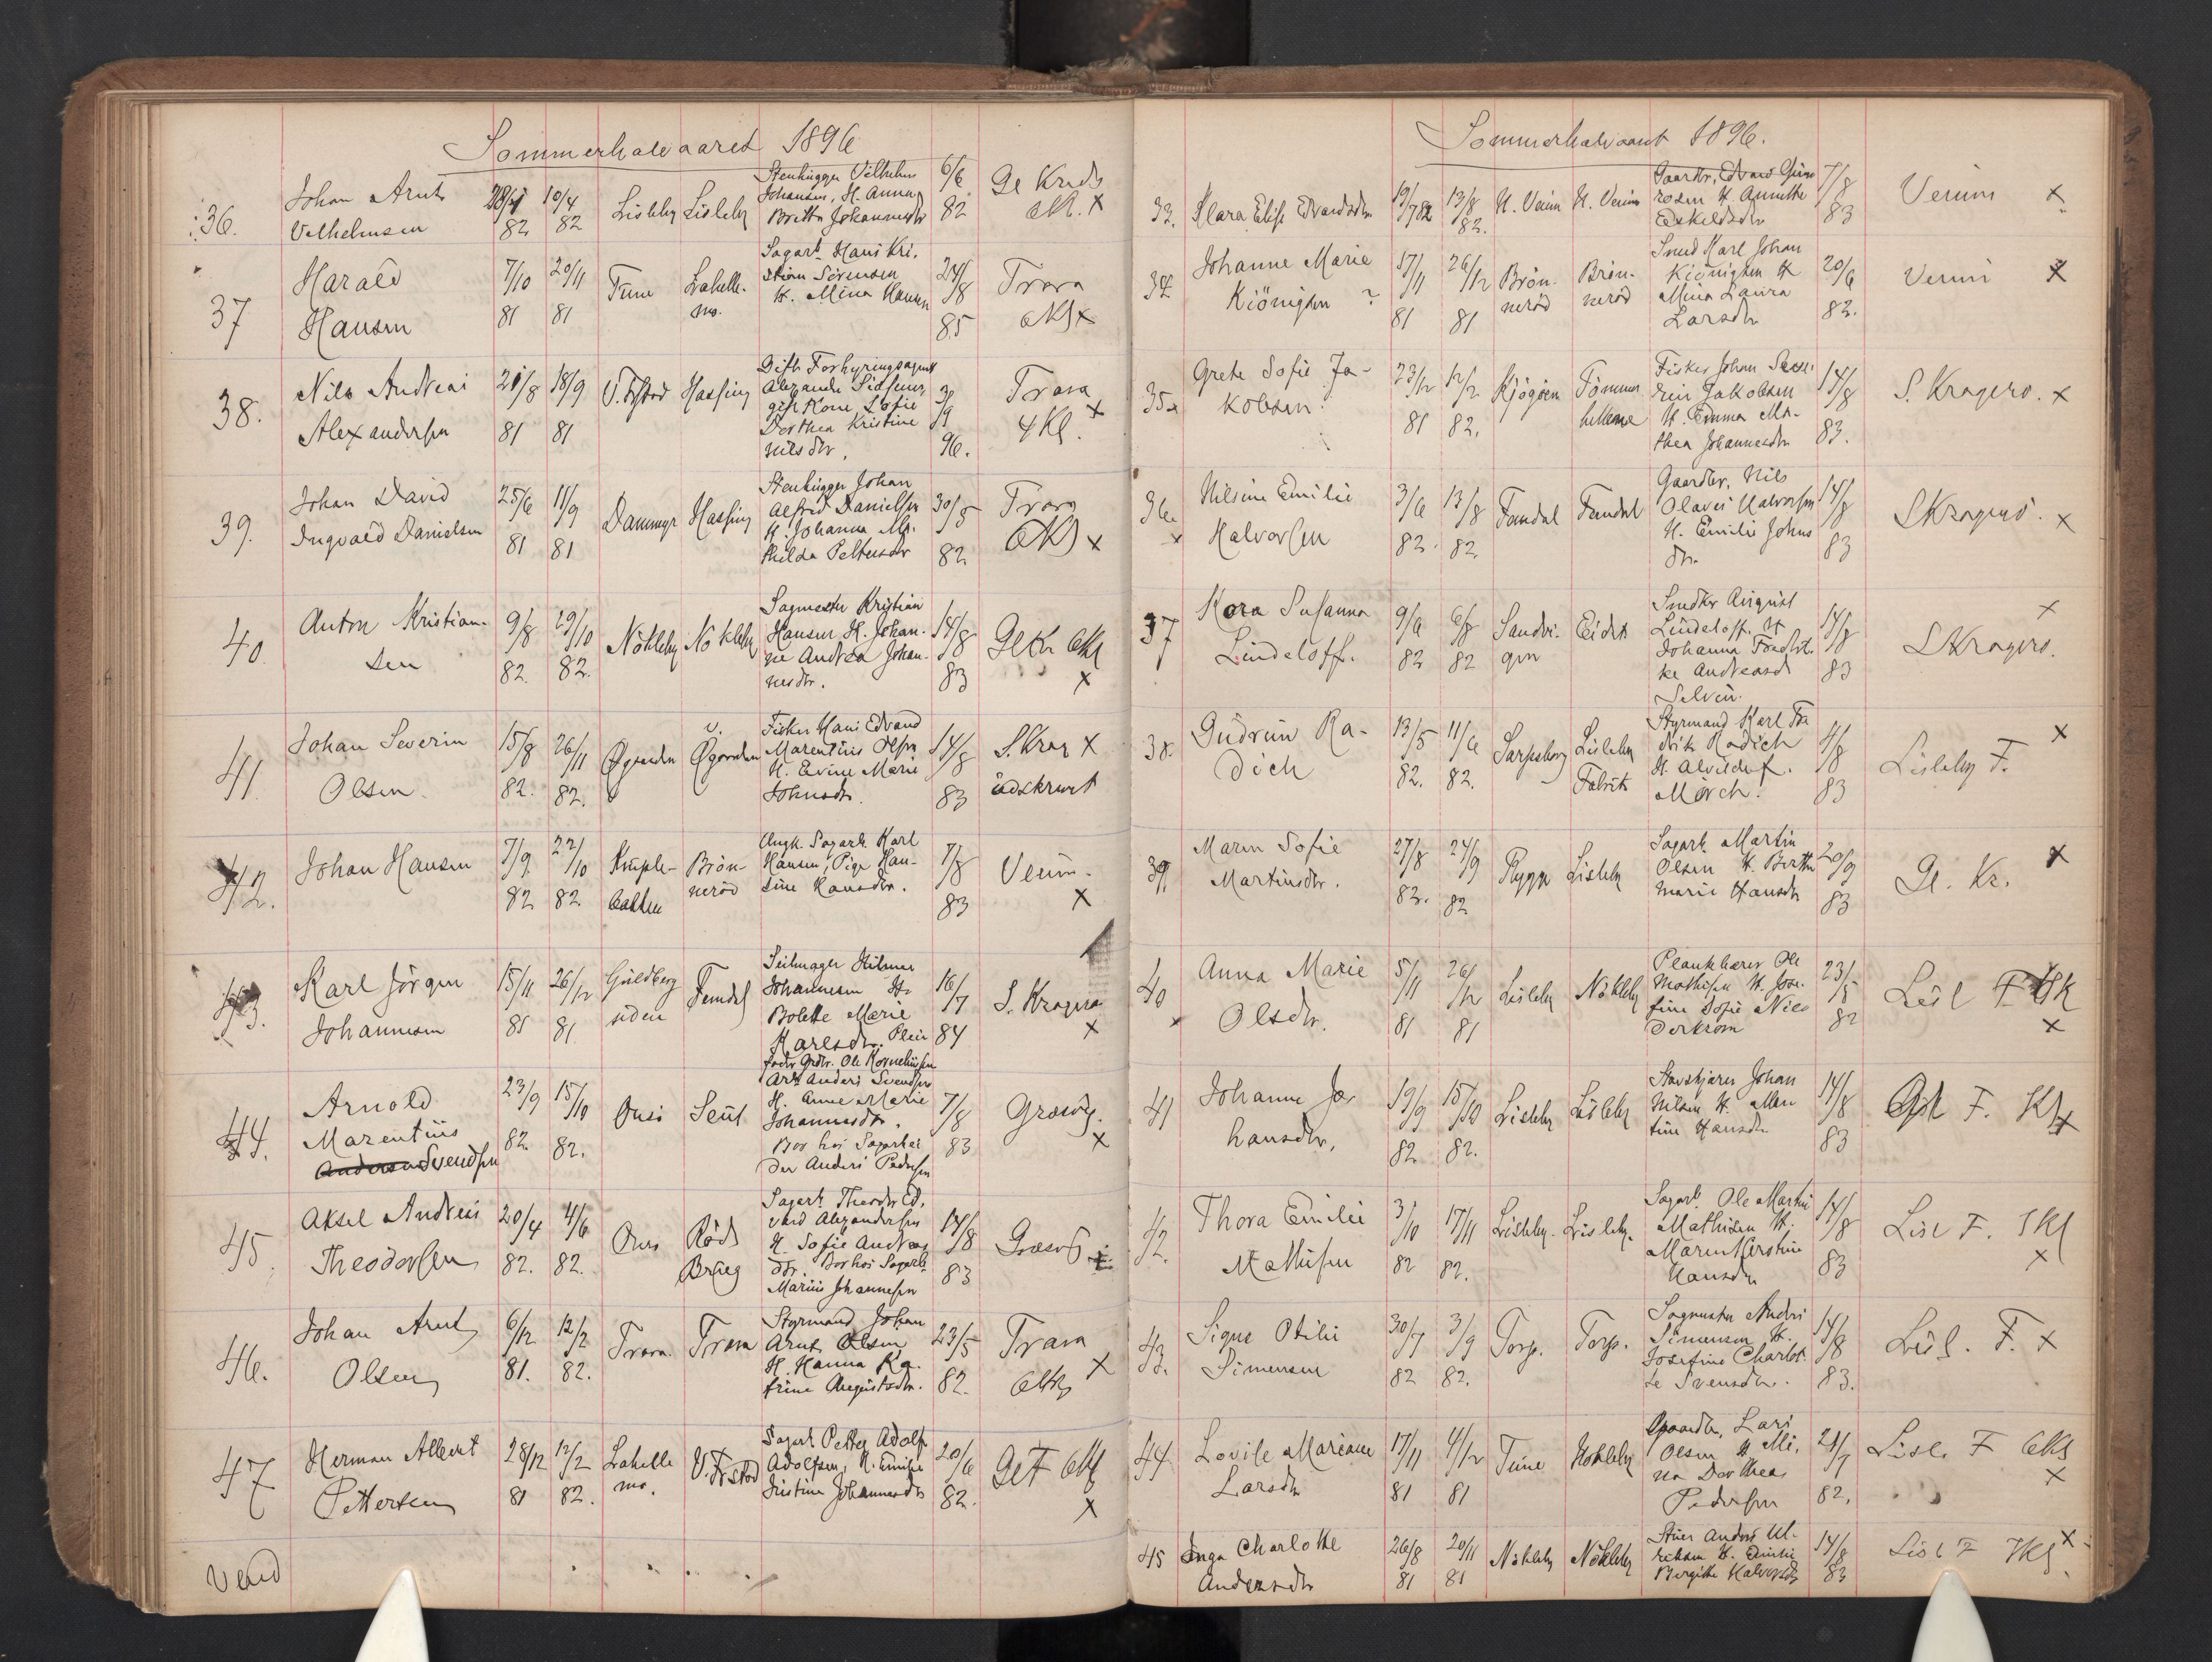 Sommerhalvaaret 1896
36. Johan Arnt Vilhelmsen 28/1 82 10/4 82 Lisleby Lisleby Stenhugger Vilhelm Johansen, H. Anna Britta Johannesdr 6/6 82 Gl Kreds x
37 Harald Hansen 7/10 81 20/11 81 Tune Lahelle- mo. Sagarb. Hans Kri- stian Sörensen H. Mina Hansen 24/8 85 Trara x
38. Nils Andreas Alexandersen 21/8 81 18/9 81 V. Frstad Hassing Gift Forhyringsagent Alexander gift Kone Sofie Dorthea Kristine Nilsdtr. 96. Trara 4 Kl. x
39. Johan David Ingvald Danielsen 25/6 81 11/9 81 Dammyr Hassing Stenhugger Johan Alfred Danielsen H. Johanna Ma- thilda Pettersdr 30/5 82 Trara x
40 Anton Kristian- sen 9/8 82. 29/10 82. Nökleby Nökleby Sagmester Kristian Hansen H. Johan- ne Andrea Johan- nesdr. 14/8 83 Gl Kr x
41. Johan Severin Olsen. 15/8 82. 26/11 82. Øgaarden V. Øgaarden Fisker Hans Edvard Marentius Olsen H. Marie Johnsdr. 14/8 83 S. Krag x udskrevet
42. Johan Hansen 7/9 82 22/10 82 Brön- neröd Ungk. Sagarb. Karl Hansen, Pige Han- sine Hansdr. 7/8 83 Veum. x
43. Karl Jörgen Johannesen 15/11 81 26/12 81 Guldberg siden Femdal Seilmager Hilmer Johannesen H. Bolette Marie Karlsdr. Pleie fader Grdbr. Ole Kornelius 16/7 84 S. Kragerö x
44. Arnold Marentius Andersen Svendsen 23/9 82. 15/10 82. Onsö Seut Arb. Anders Svendsen H. Anne Marie Johannesdr. Bor hos Sagarbei der Anders Pedersen 7/8 83 Græsvig. x
45. Aksel Andreas Theodorsen 20/4 82. 4/6 82. Onsö Röds Brug Sagarb. Theodor Ed- vard Alexandersen H. Sofie Andreas dtr. Bor hos Sagarb. Marius Johannesen 14/8 83 Græsvig
46. Johan Arnt Olsen 6/12 81. 12/2 82. Trara. Trara Styrmand Johan Arnt Olsen H. Hanna Ka- trine Augustsdr. 23/5 82. Trara x
47 Herman Albert Pettersen 28/12 81 12/2 82. Lahelle mo. V. Frstad Sagarb. Petter Adolf Adolfsen, H. Emilie Justine Johannesdr 20/6 82. Gl F x
Vend
Sommerhalvaaret 1896.
33. Klara Elise Edvardsdr 19/7 82 13/8 82. N. Veum N. Veum Gaardbr. Edvard Grim rosen H. Annette Eskildsdr 7/8 83 Veum x
34 Johanne Marie Kiönigsen ? 17/11 81 26/12 81 Brön- neröd Brön- neröd Smed Karl Johan Kiönigsen H Mina Laura Larsdr 20/6 82. Veum x
35 Grete Sofie Ja- kobsen. 23/12 81 12/2 82. Kjögöen Tömmer hellene Fisker Johan Seve- rin Jakobsen H. Emma Ma- thea Johannesdr 14/8 83. S. Kragerö. x
36. x Nilsine Emilie Halvorsen 3/6 82. 13/8 82 Femdal Femdal Gaardbr. Nils Olaves Halvorsen H. Emilie Johns dr. 14/8 83 S Kragerö. x
37 Kora Susanna Lindeloff. 9/6 82 6/8 82 Sandvi- gen Eidet Smedkr August Lindeloff. H Johanna Fredrik- ke Andreasd Selven. 14/8 83 S Kragerö. x
38. Gudrun Ra- dich 13/5 82. 11/6 82. Sarpsborg Lisleby Fabrik Styrmand Karl Fre drik Radich H. Alvilde f. Mörch. 4/8 83 Lisleby F. x
39. Maren Sofie Martinsdr. 27/8 82. 24/9 82 Rygge Lisleby Sagarb. Martin Olsen H. Berthe Marie Hansdr 20/9 83 Gl. Kr. x
40 x Anna Marie Olsdtr. 5/11 81 26/12 81 Lisleby Nökleby Plankebærer Ole Mathisen H. Jose- fine Sofie Nils Derkrom 23/5 82 Lisl F. x
41 Johanne Jo- hansdtr. 19/9 82. 15/10 82. Lisleby Lisleby Stavskjærer Johan Nilsen H. Mar tine Hansdr 14/8 83 F. Kl x
42. Thora Emilie Mathisen 3/10 82 17/11 82. Lisleby. Lisleby. Sagarb. Ole Martin Mathisen H. Maren Kerstine Hansdr 14/8 83 Lisl F. x
43. Signe Otilie Simensen 30/7 82 3/9 82. Torp. Torp. Sagmester Anders Simensen H. Josefine Charlot- te Svensdr. 14/8 83. Lisl. F. x
44 Lovise Mariane Larsdr 17/11 81 4/12 81 Tune Nökleby Gaardbr. Lars Olsen H Mi- na Dorthea Pedersen 21/7 82. Lisl. F x
45 Inga Charlotte Andersdr 26/8 81 20/11 81 Nökleby Nökleby Stuer Anders Ul- riksen H. Emilie Birgitte Halvorsdr 14/8 83 Lisl F x